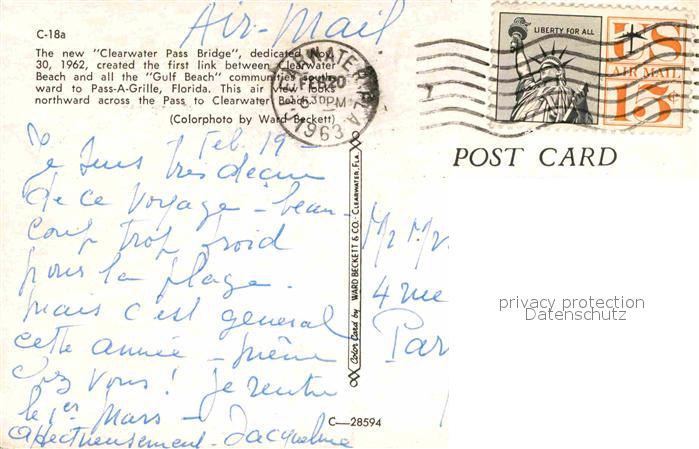 Air-Mail
C-18a
The new "Clearwater Pass Bridge", dedicated Nov.
30, 1962, created the first link between Clearwater
Beach and all the "Gulf Beach" communities south-
ward to Pass-A-Grille, Florida. This air view looks
northward across the Pass to Clearwater Beach.
(Colorphoto by Ward Beckett)
CLEARWATER, FLA.
FEB 20
6:30 PM
1963
LIBERTY FOR ALL
US
AIR MAIL
15¢
POST CARD
Feb. 19 -
Je suis très déçue
de ce voyage - beau-
coup trop froid
pour la plage.
mais c'est général
cette année - même
chez vous! Je rentre
le 1er Mars -
affectueusement - Jacqueline
Color Card by WARD BECKETT & CO. - CLEARWATER, FLA.
C—28594
4 rue
Par
privacy protection
Datenschutz